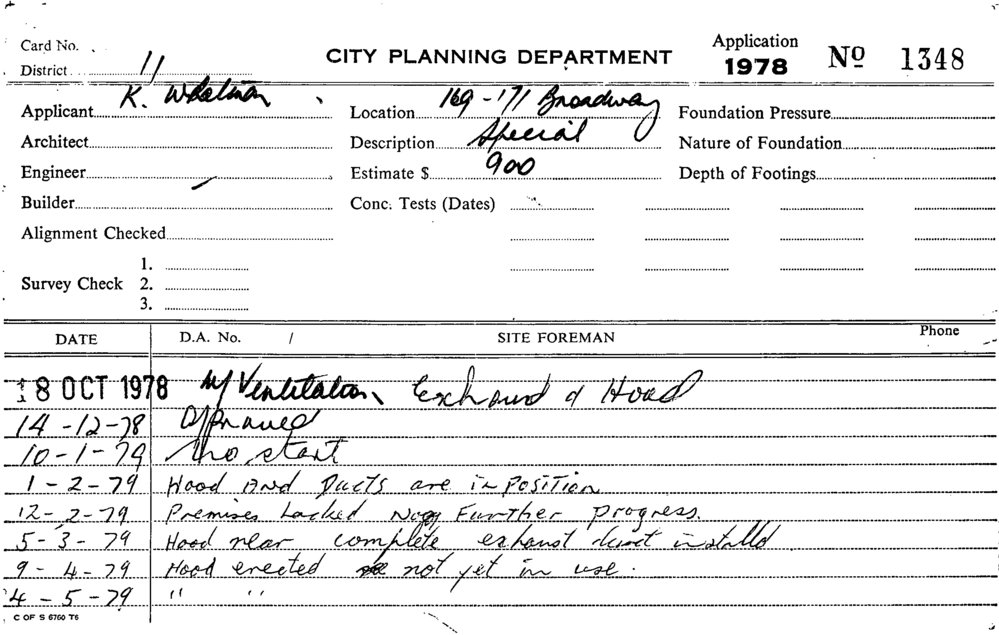 Card No.
CITY PLANNING DEPARTMENT
Application
1978
Nº 1348
District 11
Applicant K. Whelan
Location 169-171 Broadway
Foundation Pressure
Architect
Description Special
Nature of Foundation
Engineer
Estimate $ 900
Depth of Footings
Builder
Conc. Tests (Dates)
Alignment Checked
Survey Check
1.
2.
3.
DATE
D.A. No. /
SITE FOREMAN
Phone
18 OCT 1978 M/Ventilation, Exhaust & Hood
14-12-78 Approved
10-1-79 No start
1-2-79 Hood and Ducts are in position
12-2-79 Premises Locked Further progress.
5-3-79 Hood near complete exhaust duct installd
9-4-79 Hood erected not yet in use.
4-5-79 " "
C OF S 6760 T6